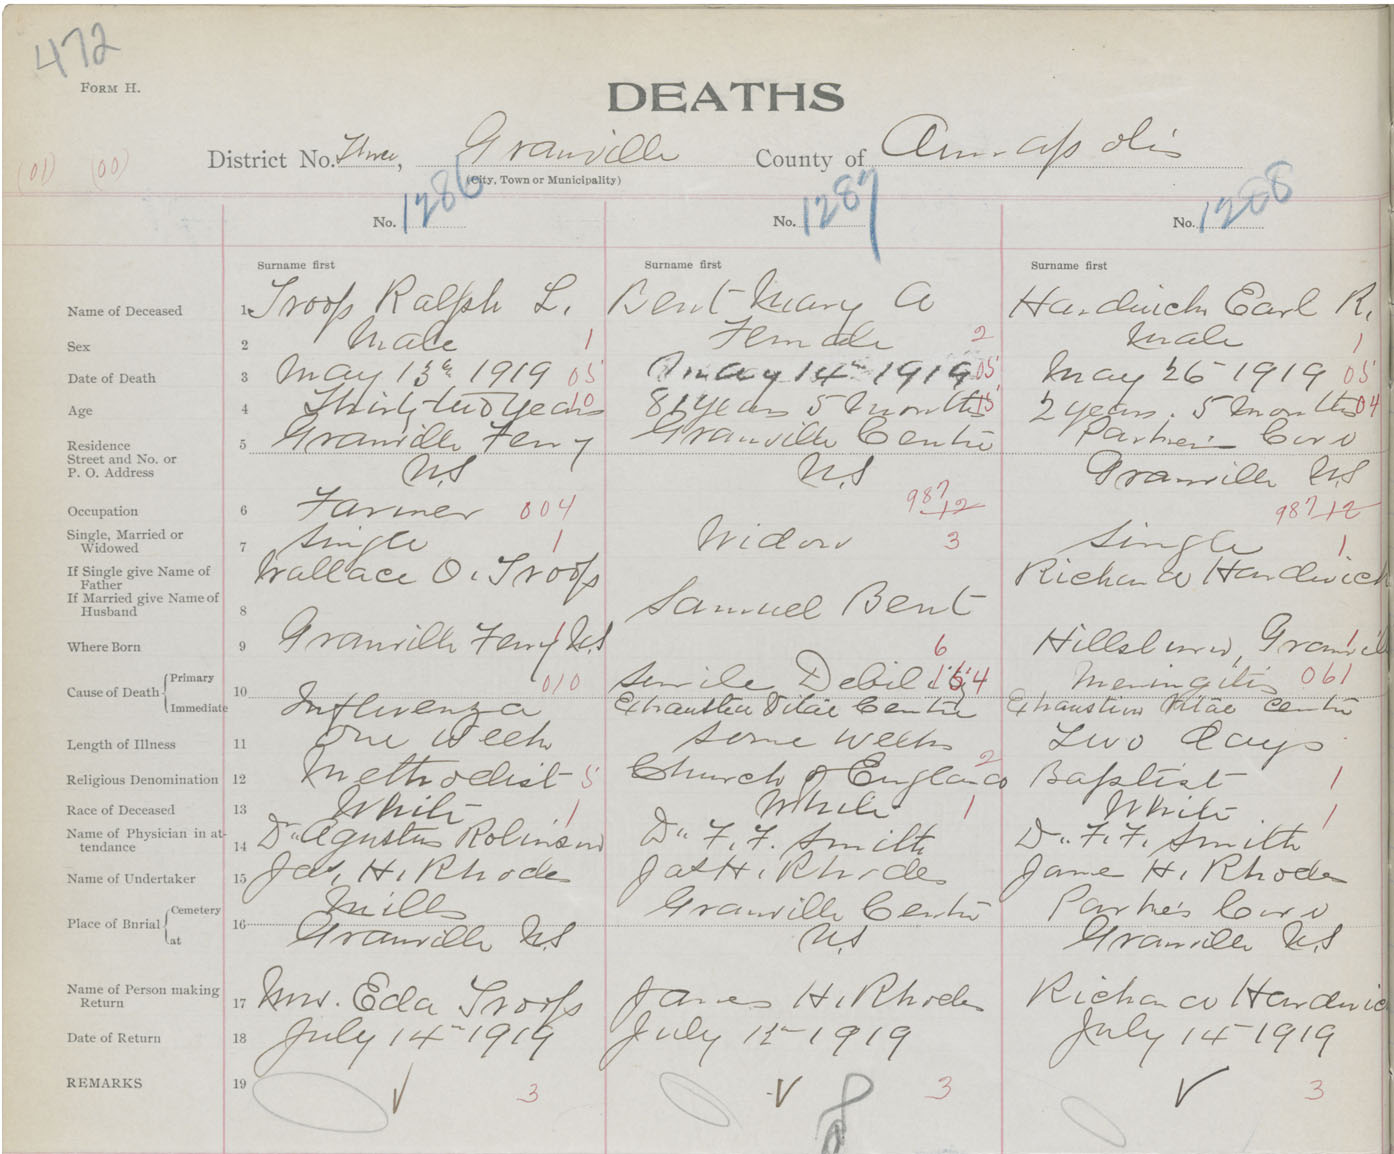 472
FORM H.
DEATHS
District No. Three, Granville County of Annapolis
(City, Town or Municipality)
(01) (00)
No. 1286 No. 1287 No. 1288
Surname first Surname first Surname first
Name of Deceased 1 Troop Ralph L. Bent Mary A Hardwick Earl R.
Sex 2 Male 1 Female 2 Male 1
Date of Death 3 May 13th 1919 05 May 14th 1919 05 May 26 1919 05
Age 4 Thirty two years 10 years 5 months 15 2 years. 5 months 04
Residence
Street and No. or
P. O. Address
5 Granville Ferry Granville Centre Parker's Cove
N.S N.S Granville N.S
Occupation 6 Farmer 004 987 12 987 12
Single, Married or
Widowed
7 Single 1 Widow 3 Single 1
If Single give Name of
Father
Wallace O. Troop Richard Hardwick
If Married give Name of
Husband
8 Samuel Bent
Where Born 9 Granville Ferry N.S 1 6 Hillsburn, Granvill 1
Cause of Death Primary 10 010 Senile Debility 154 Meningitis 061
Immediate Influenza Exhaustion Vitae Centre Exhaustion Vitae Centre
Length of Illness 11 One Week Some Weeks Two Days
Religious Denomination 12 Methodist 5 Church of England 2 Baptist 1
Race of Deceased 13 White 1 White 1 White 1
Name of Physician in at-
tendance
14 Dr. Agustus Robinson Dr. F. F. Smith Dr. F. F. Smith
Name of Undertaker 15 Jas. H. Rhodes Jas H. Rhodes Jame H. Rhodes
Place of Burial Cemetery 16 Mills Granville Centre Parke's Cove
at Granville N.S N.S Granville N.S
Name of Person making
Return
17 Mrs. Eda Troop James H. Rhodes Richard Hardwic
Date of Return 18 July 14th 1919 July 1919 July 14 1919
REMARKS 19 ✓ 3 ✓ 3 ✓ 3